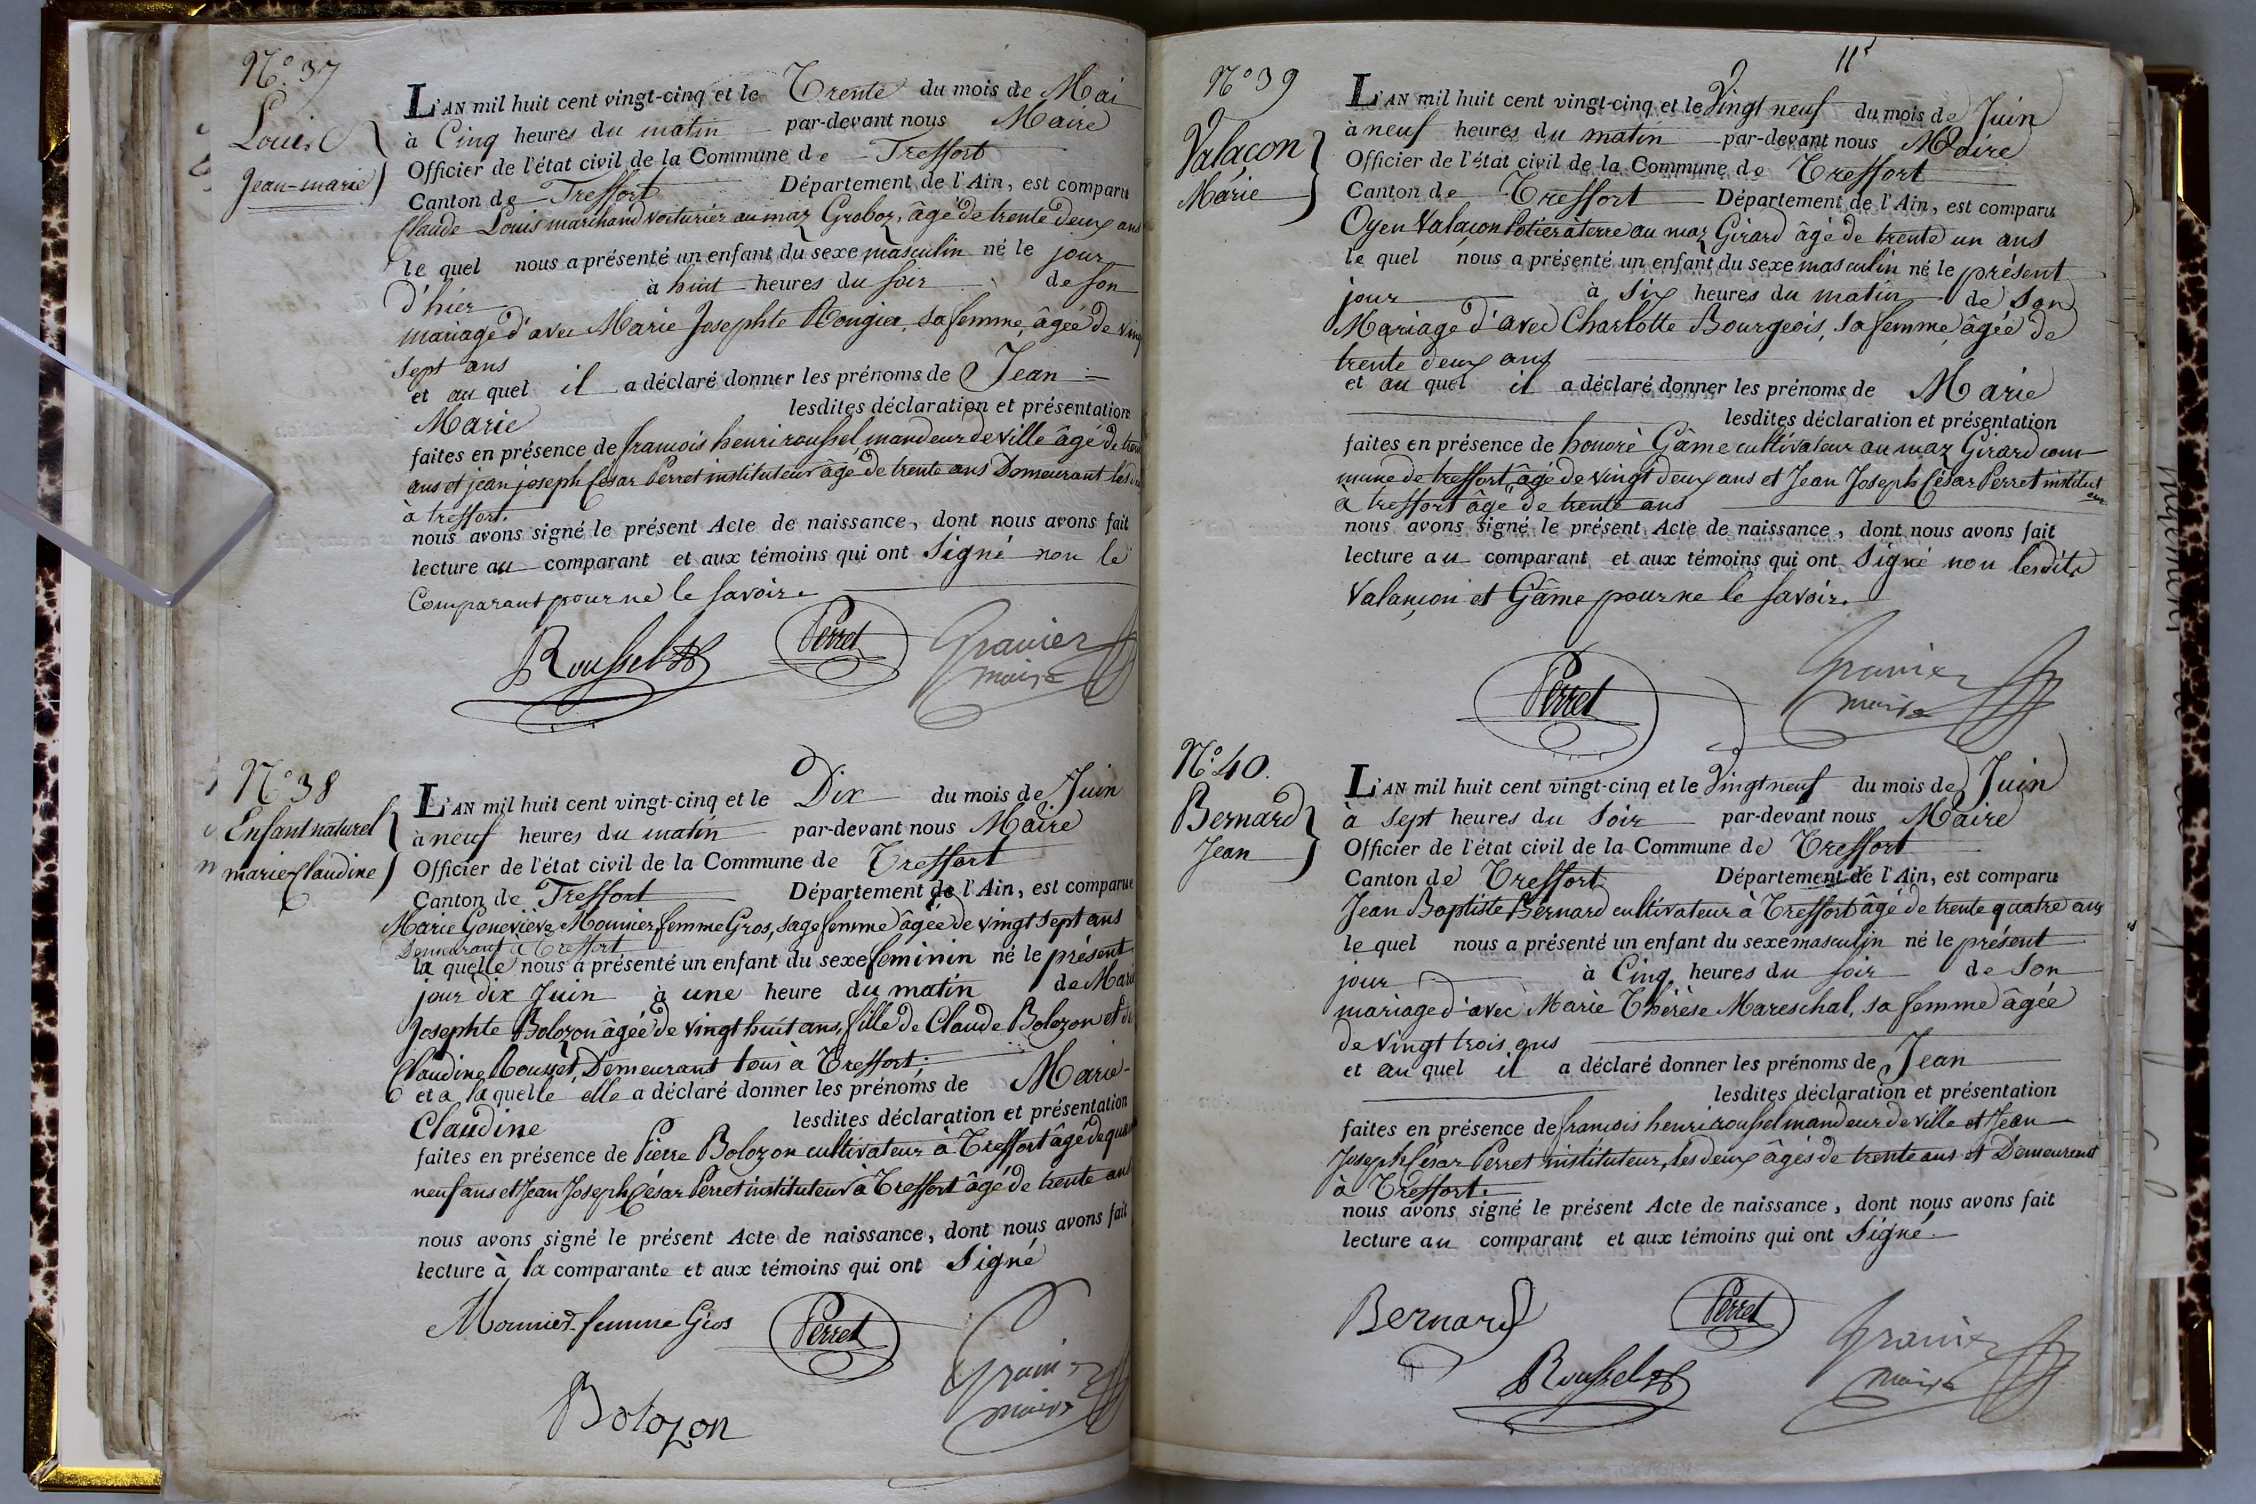 N.º 37
Louis
Jean-marie
L'AN mil huit cent vingt-cinq et le Trente du mois de Mai
à Cinq heures du matin par-devant nous Maire
Officier de l'état civil de la Commune de Treffort
Canton de Treffort Département de l'Ain, est comparu
Claude Louis marchand voiturier au maz Groboz, âgé de trente deux ans
le quel nous a présenté un enfant du sexe masculin né le jour
d'hier à huit heures du soir de son
mariage d'avec Marie Josephte Rougier, sa femme, âgée de vingt
sept ans
et au quel il a déclaré donner les prénoms de Jean =
Marie lesdites déclaration et présentation
faites en présence de francois henri roussel mandeur de ville âgé de
ans et jean joseph César Perret instituteur âgé de trente ans Demeurant les
à treffort.
nous avons signé le présent Acte de naissance, dont nous avons fait
lecture au comparant et aux témoins qui ont Signé non le
Comparant pour ne le savoir.
Roussel
Perret
Gravier
maire
N.º 38
Enfant naturel
marie Claudine
L'AN mil huit cent vingt-cinq et le Dix du mois de Juin
à neuf heures du matin par-devant nous Maire
Officier de l'état civil de la Commune de Treffort
Canton de Treffort Département de l'Ain, est comparue
Marie Geneviève Mounier femme Gros, sage femme âgée de vingt sept ans
Demeurant à Treffort
la quelle nous a présenté un enfant du sexe feminin né le présent
jour dix Juin à une heure du matin de Marie
Josephte Bolozon âgée de vingt huit ans, fille de Claude Bolozon et de
Claudine Rousset, Demeurant tous à Treffort;
et a la quelle elle a déclaré donner les prénoms de Marie-
Claudine lesdites déclaration et présentation
faites en présence de Pierre Bolozon cultivateur à Treffort âgé de
neuf ans et Jean Joseph César Perret instituteur à Treffort âgé de trente ans
nous avons signé le présent Acte de naissance, dont nous avons fait
lecture à la comparante et aux témoins qui ont Signé
Mounier femme Gros
Perret
Gravier
maire
Bolozon
11
N.º 39
Valaçon
Marie
L'AN mil huit cent vingt-cinq et le Vingt neuf du mois de Juin
à neuf heures du matin par-devant nous Maire
Officier de l'état civil de la Commune de Treffort
Canton de Treffort Département de l'Ain, est comparu
Oyen Valaçon Potier à terre au maz Girard âgé de trente un ans
le quel nous a présenté un enfant du sexe masculin né le présent
jour à Six heures du matin de Son
Mariage d'avec Charlotte Bourgeois, sa femme, âgée de
trente deux ans
et au quel il a déclaré donner les prénoms de Marie
lesdites déclaration et présentation
faites en présence de honoré Gâme cultivateur au maz Girard com-
mune de treffort, âgé de vingt deux ans et Jean Joseph César Perret institut
eur
à treffort âgé de trente ans
nous avons signé le présent Acte de naissance, dont nous avons fait
lecture au comparant et aux témoins qui ont Signé non lesdits
Valançon et Gâme pour ne le savoir.
Perret
Gravier
maire
N.º 40.
Bernard
Jean
L'AN mil huit cent vingt-cinq et le Vingt neuf du mois de Juin
à Sept heures du Soir par-devant nous Maire
Officier de l'état civil de la Commune de Treffort
Canton de Treffort Département de l'Ain, est comparu
Jean Baptiste Bernard cultivateur à Treffort âgé de trente quatre ans
le quel nous a présenté un enfant du sexe masculin né le présent
jour à Cinq heures du soir de Son
mariage d'avec Marie Thérèse Mareschal, sa femme âgée
de vingt trois ans
et au quel il a déclaré donner les prénoms de Jean
lesdites déclaration et présentation
faites en présence de francois henri roussel mandeur de ville et Jean
Joseph César Perret instituteur, les deux âgés de trente ans et Demeurent
à Treffort.
nous avons signé le présent Acte de naissance, dont nous avons fait
lecture au comparant et aux témoins qui ont Signé.
Bernard
Perret
Roussel
Gravier
maire